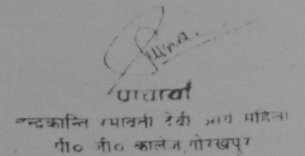 प्राचार्या
न्द्रकान्ति रमावती देवी आर्य महिला
पी० जी० कालेज, गोरखपुर